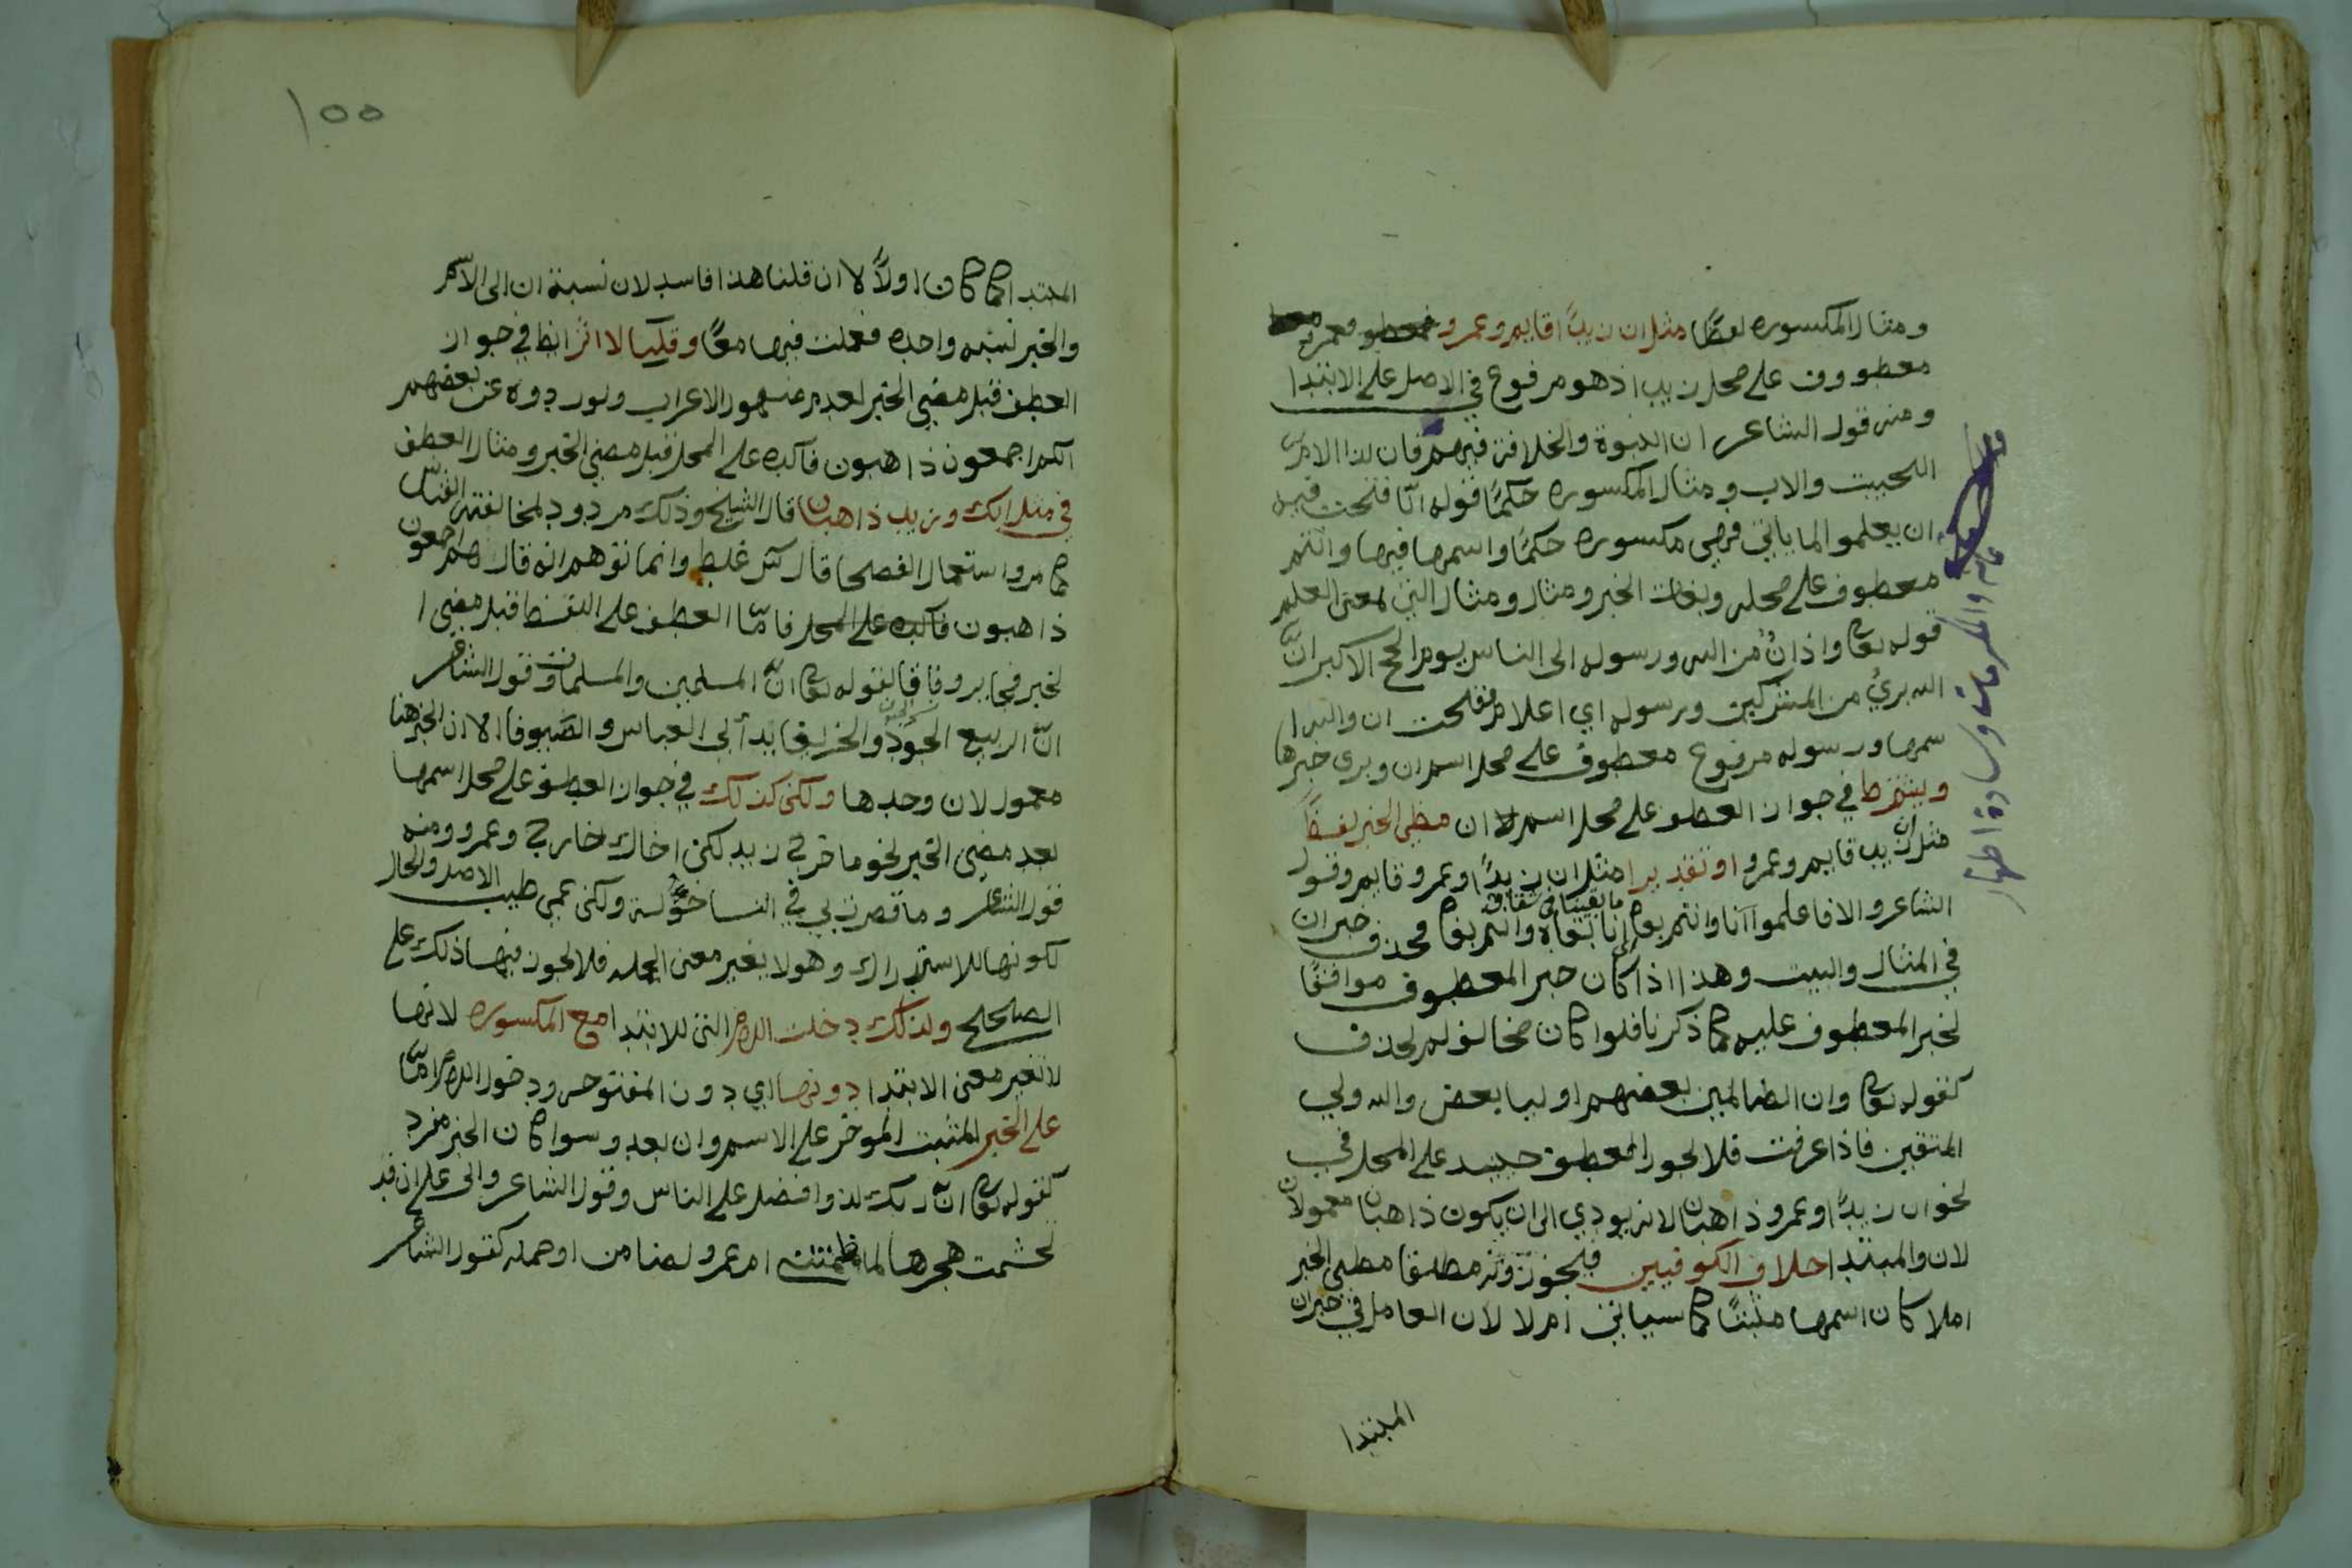 ومثال المكسوره لفظًا مثل ان زيدًا قايم وعمرو فعمرو
معطووف على محل زيد اذ هو مرفوع في الاصل على الابتدا
ومنه قول الشاعر ان النبوة والخلافة فيهم
والاب ومثال المكسوره حكمًا قوله فتحت فيه
ان يعلموا لما ياتي فهي مكسوره حكمًا واسمها فيها وانتم
معطوف على محله وبغات الخبر ومثال ومثال التي لمعنى العلم
قوله تعا واذانٌ من الله ورسوله الى الناس يوم الحج الاكبر انّ
الله بريٌ من المشركين ورسوله اي اعلام ففتحت ان والله ا
سمها ورسوله مرفوع معطوف على محل اسم ان وبرى خبرها
ويشترط في جواز العطف على محل اسم لا ان مظي الخبر لفظًا
مثل ان زيد قايم وعمرو او تقديرا مثل ان زيدًا وعمرو قايم وقول
الشاعر والا فاعلموا انا وانتم بغاة ما بقينا في شقاق انا بغاه وانتم بغاة فحذف خبر ان
في المثال والبيت وهذا اذا كان خبر المعطوف موافقًا
لخبر المعطوف عليه كما ذكرنا فلوا كان مخالف لم يحذف
كقوله تعا وان الظالمين بعضهم اوليا بعض والله ولي
المتقين فاذا عرفت فلا يجوز العطف حينيد على المحل في
نحو ان زيدًا وعمرو ذاهبان لانه يودي الى ان يكون ذاهبان معمولان
لان والمبتدا خلاف الكوفيين فيجوزونه مطلقا مظى الخبر
املا كان اسمها مبنيًا كما سياتي ام لا لان العامل في خبر ان
المبتدا
المبتدا كما كان اولاً لا ان قلنا هذا فاسد لان نسبة ان الى الاسم
والخبر نسبه واحده فعملت فيهما معًا وقلنا لا اثر ايظ في جواز
العطف قبل مضي الخبر لعدم ضهور الاعراب ولورودوه عن بعضهم
انكم اجمعون ذاهبون فاكده على المحل قبل مضي الخبر ومثال العطف
في مثل انك وزيد ذاهبان قال الشيخ وذلك مردود لمخالفته القياس
كما مر واستعمال الفصحا قال غلط وانما توهم انه قال هم اجمعون
ذاهبون فاكده على المحل فامّا العطف على اللفظ قبل مضي ا
لخبر فجايز وفاقا لقوله تعا انّ المسلمين والمسلمات وقول الشاعر
انّ الربيع الجود والخريفا يدا ابي العباس والصيوفا الا ان الخبر هنا
معمول لان وحدها ولكن كذلك في جواز العطف على محل اسمها
بعد مضي الخبر نحو ما خرج زيد لكن اخاك خارج وعمرو ومنه
قول الشاعر وما قصرت بي في التسا خؤلة ولكن عمي طيب الاصل والخال
لكونها للاستدراك وهو لا يغير معنى الجمله فلا يجوز فيها ذلك على
الصحيح ولذلك دخلت اللام التي للابتدا مع المكسوره لانها
لا تغير معنى الابتدا دونها اي دون المفتوحه ودخول اللام امّا
على الخبر المثبت الموخر على الاسم وان بعد وسوا كان الخبر مفرد
كقوله تعا انّ ربك لذوا فضل على الناس وقول الشاعر واني على ان قد
تجشمت هجرها لما ضمنتني ام عمرو لضامن او جمله كقول الشاعر